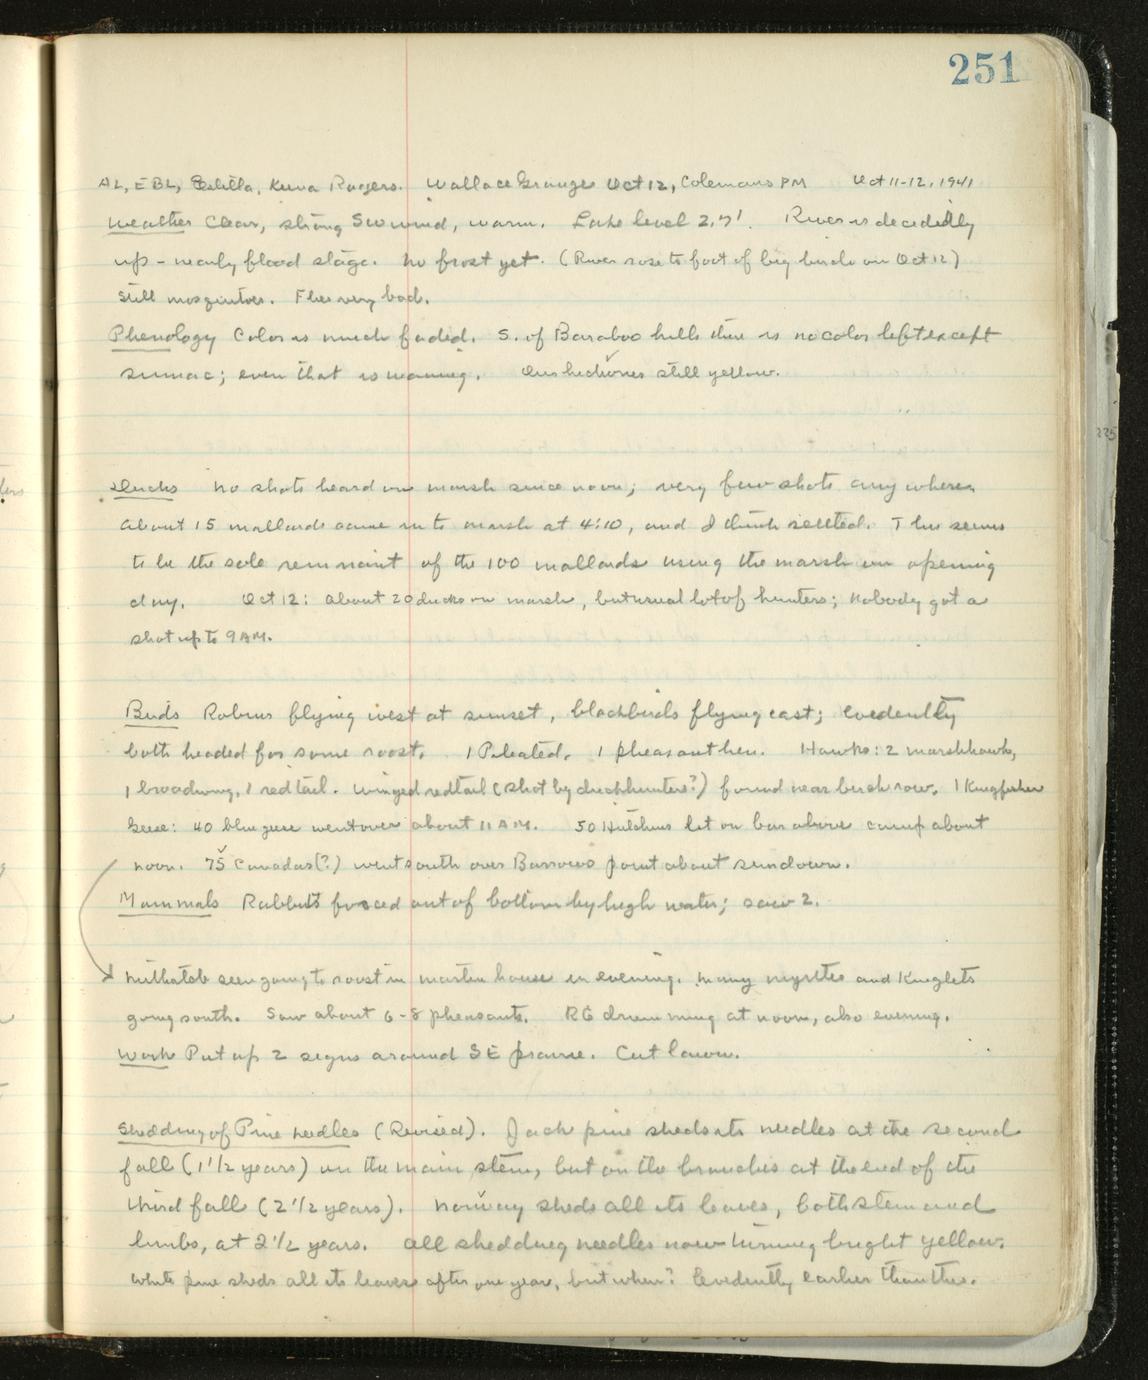 251
AL, EBL, Estella, Kuna Rogers. Wallace Grange Oct 12, Colemans PM Oct 11-12, 1941
Weather Clear, strong SW wind, warm. Lake level 2.7'. River is decidedly
up - nearly flood stage. No frost yet. (River rose to foot of big birch on Oct 12)
Still mosquitoes. Flies very bad.
Phenology Color is much faded. S. of Baraboo hills there is no color left except
sumac; even that is waning. Our hickories still yellow.
Ducks No shots heard on marsh since noon; very few shots anywhere.
About 15 mallards came into marsh at 4:10, and I think settled. This seems
to be the sole remnant of the 100 mallards using the marsh on opening
day. Oct 12: About 20 ducks on marsh, but usual lot of hunters; nobody got a
shot up to 9 AM.
Birds Robins flying west at sunset, blackbirds flying east; evidently
both headed for some roost. 1 Pileated. 1 pheasant hen. Hawks: 2 marshhawks,
1 broadwing, 1 redtail. Winged redtail (shot by duckhunters?) found near birch row. 1 Kingfisher
Geese: 40 blue geese went over about 11 AM. 50 Hutchins lit on bar above camp about
noon. 75 Canadas(?) went south over Barrows point about sundown.
Mammals Rabbits forced out of bottom by high water; saw 2.
Nuthatch seen going to roost in martin house in evening. Many myrtles and Kinglets
going south. Saw about 6-8 pheasants. RG drumming at noon, also evening.
Work Put up 2 signs around SE prairie. Cut lawn.
Shedding of Pine needles (Revised). Jack pine sheds its needles at the second
fall (1 1/2 years) on the main stem, but on the branches at the end of the
third fall (2 1/2 years). Norway sheds all its leaves, both stem and
limbs, at 2 1/2 years. All shedding needles now turning bright yellow.
White pine sheds all its leaves after one year, but when? Evidently earlier than this.
225